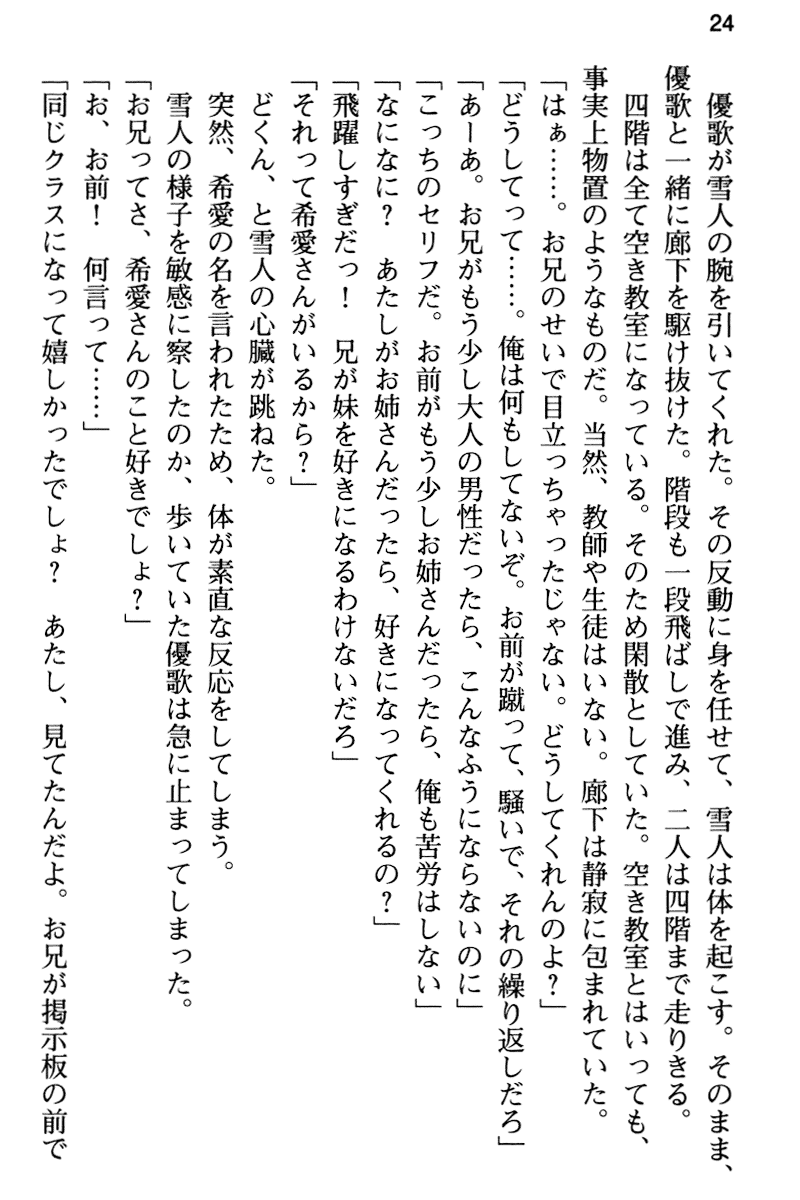 24
　優歌が雪人の腕を引いてくれた。その反動に身を任せて、雪人は体を起こす。そのまま、
優歌と一緒に廊下を駆け抜けた。階段も一段飛ばしで進み、二人は四階まで走りきる。
　四階は全て空き教室になっている。そのため閑散としていた。空き教室とはいっても、
事実上物置のようなものだ。当然、教師や生徒はいない。廊下は静寂に包まれていた。
「はぁ……。お兄のせいで目立っちゃったじゃない。どうしてくれんのよ？」
「どうしてって……。俺は何もしてないぞ。お前が蹴って、騒いで、それの繰り返しだろ」
「あーあ。お兄がもう少し大人の男性だったら、こんなふうにならないのに」
「こっちのセリフだ。お前がもう少しお姉さんだったら、俺も苦労はしない」
「なになに？　あたしがお姉さんだったら、好きになってくれるの？」
「飛躍しすぎだっ！　兄が妹を好きになるわけないだろ」
「それって希愛さんがいるから？」
　どくん、と雪人の心臓が跳ねた。
　突然、希愛の名を言われたため、体が素直な反応をしてしまう。
　雪人の様子を敏感に察したのか、歩いていた優歌は急に止まってしまった。
「お兄ってさ、希愛さんのこと好きでしょ？」
「お、お前！　何言って……」
「同じクラスになって嬉しかったでしょ？　あたし、見てたんだよ。お兄が掲示板の前で